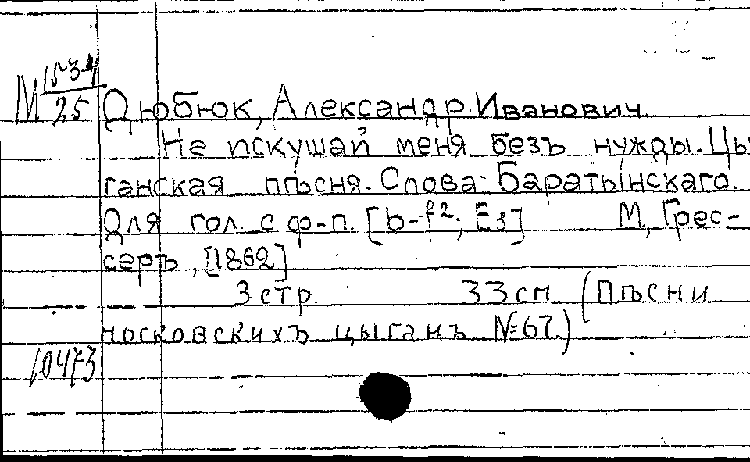 М 1534/25 Дюбюк, Александр Иванович.
Не искушай меня безъ нужды. Цы-
ганская пѣсня. Слова: Баратынскаго.
Для гол. с ф-п. [b-f², Es] М, Грес-
серъ, [1862]
3 стр 33 см (Пѣсни
московскихъ цыганъ №67.)
10473